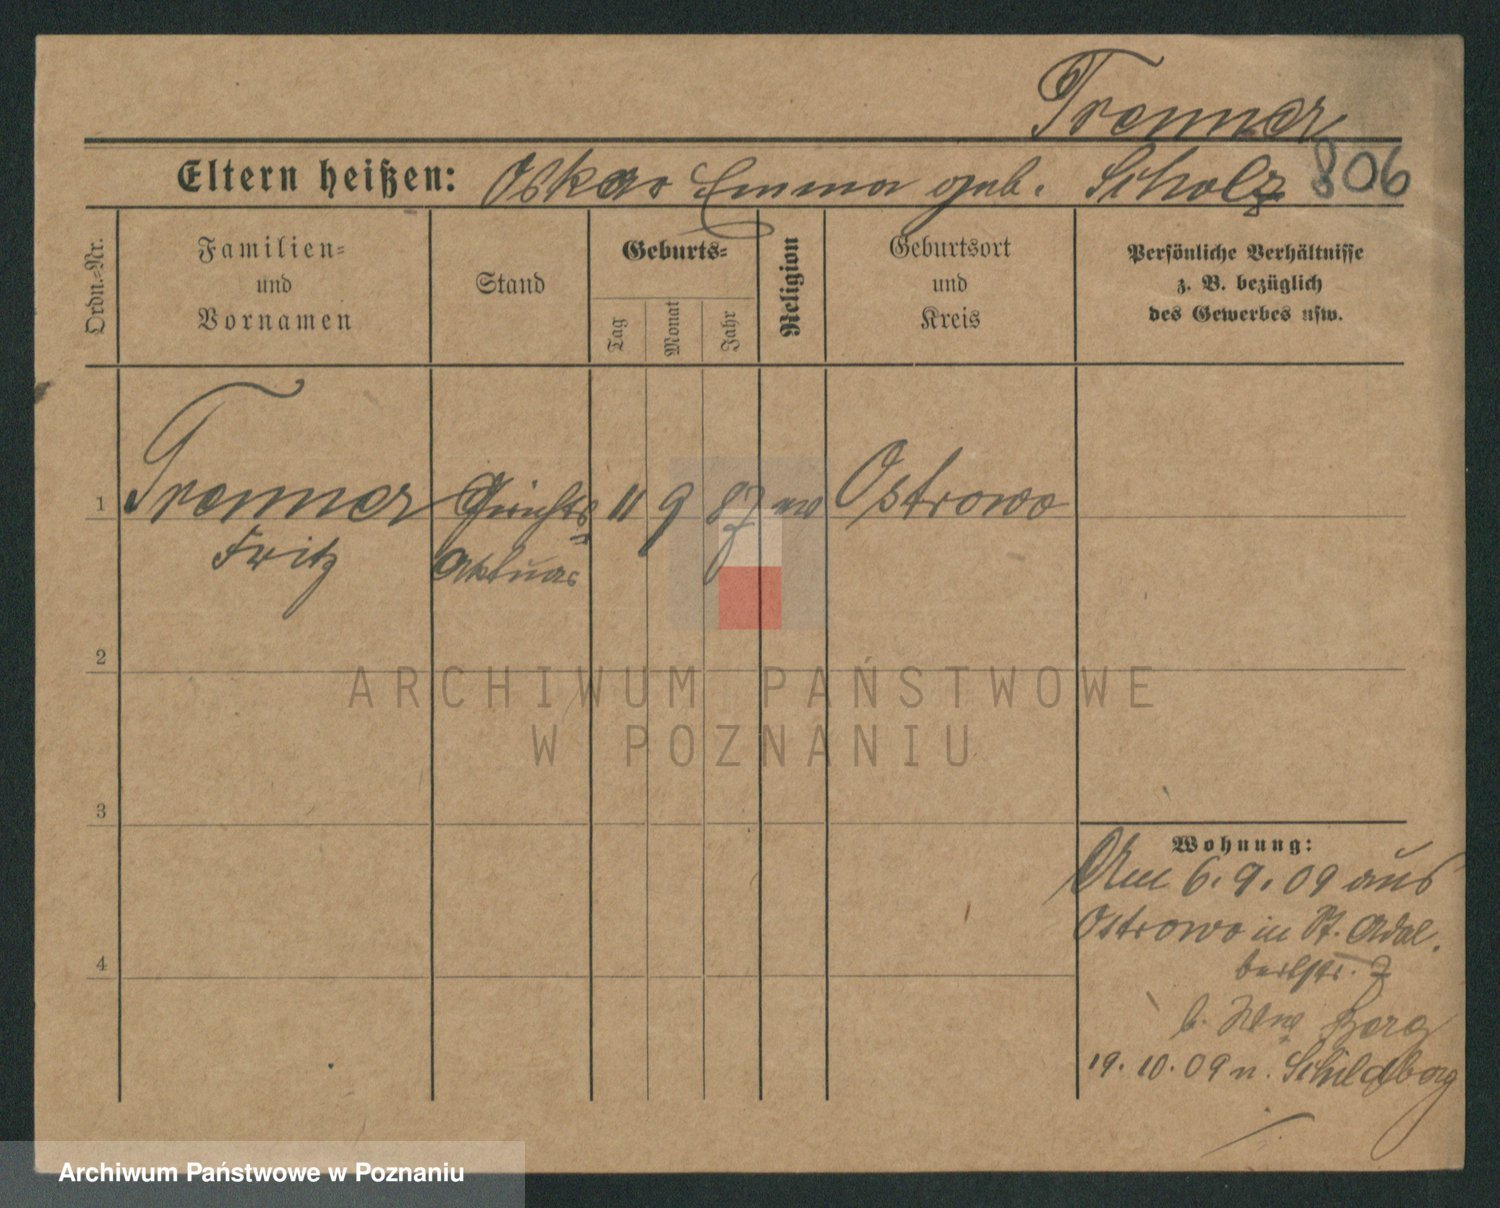 Trenner
Eltern heißen: Oskar Emma geb. Scholz 806
Ordn.-Nr.
Familien-
und
Vornamen
Stand
Geburts-
Tag
Monat
Jahr
Religion
Geburtsort
und
Kreis
Persönliche Verhältnisse
z. B. bezüglich
des Gewerbes usw.
1 Trenner Gerichts 11 9 87 ev Ostrowo
Fritz Aktuar
2
ARCHIWUM PAŃSTWOWE
W POZNANIU
3
Wohnung:
Am 6.9.09 aus
Ostrowo in St. Adal
bertstr. 7
4
b. Wwe Berg
19.10.09 n. Schildberg
Archiwum Państwowe w Poznaniu